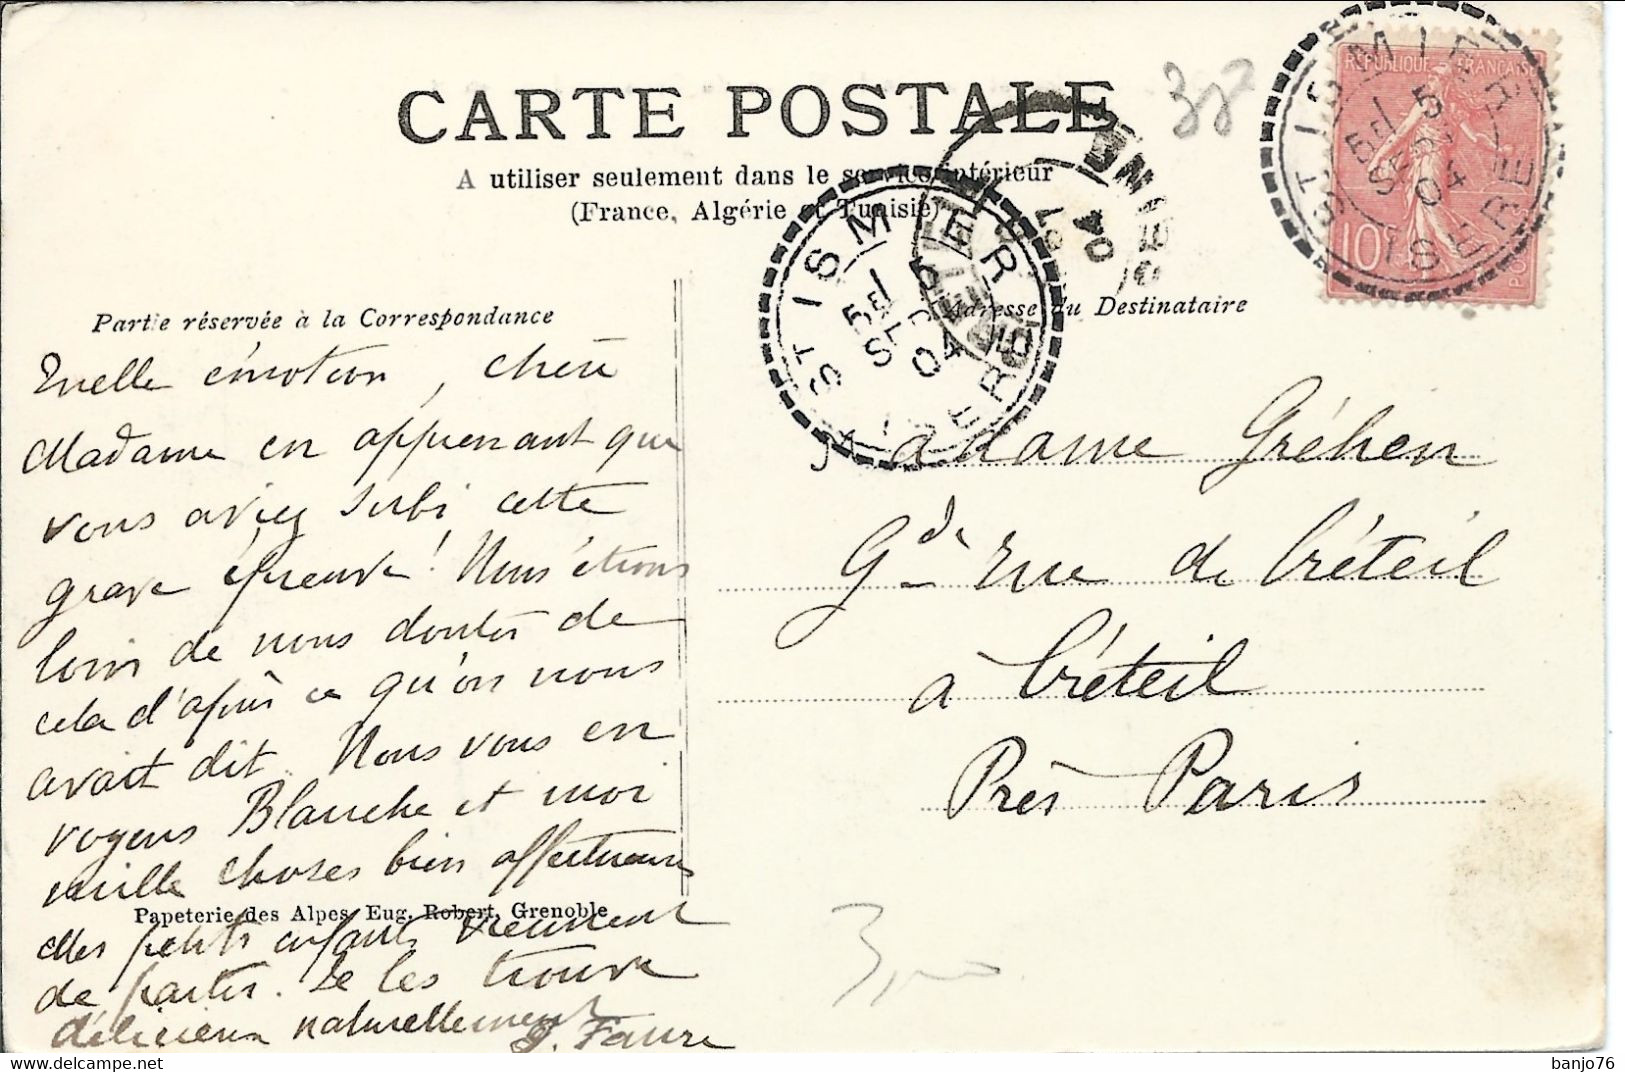 CARTE POSTALE
A utiliser seulement dans le service intérieur
(France, Algérie et Tunisie)
RÉPUBLIQUE FRANÇAISE
10
ST ISMIER
5E/ 5
SEPT
04
ISÈRE
ST ISMIER
5E/ 5
SEPT
04
ISÈRE
04
Partie réservée à la Correspondance
Adresse du Destinataire
Quelle émotion, chère
Madame en apprenant que
vous aviez subi cette
grave épreuve! Nous étions
loin de nous douter de
cela d'après ce qu'on nous
avait dit. Nous vous en
voyons Blanche et moi
mille choses bien affectueuses
Papeterie des Alpes, Eug. Robert, Grenoble
Mes petits enfants viennent
de partir. Je les trouve
délicieux naturellement
J. Faure
Madame Gréhen
Gde rue de Créteil
à Créteil
Près Paris
banjo76